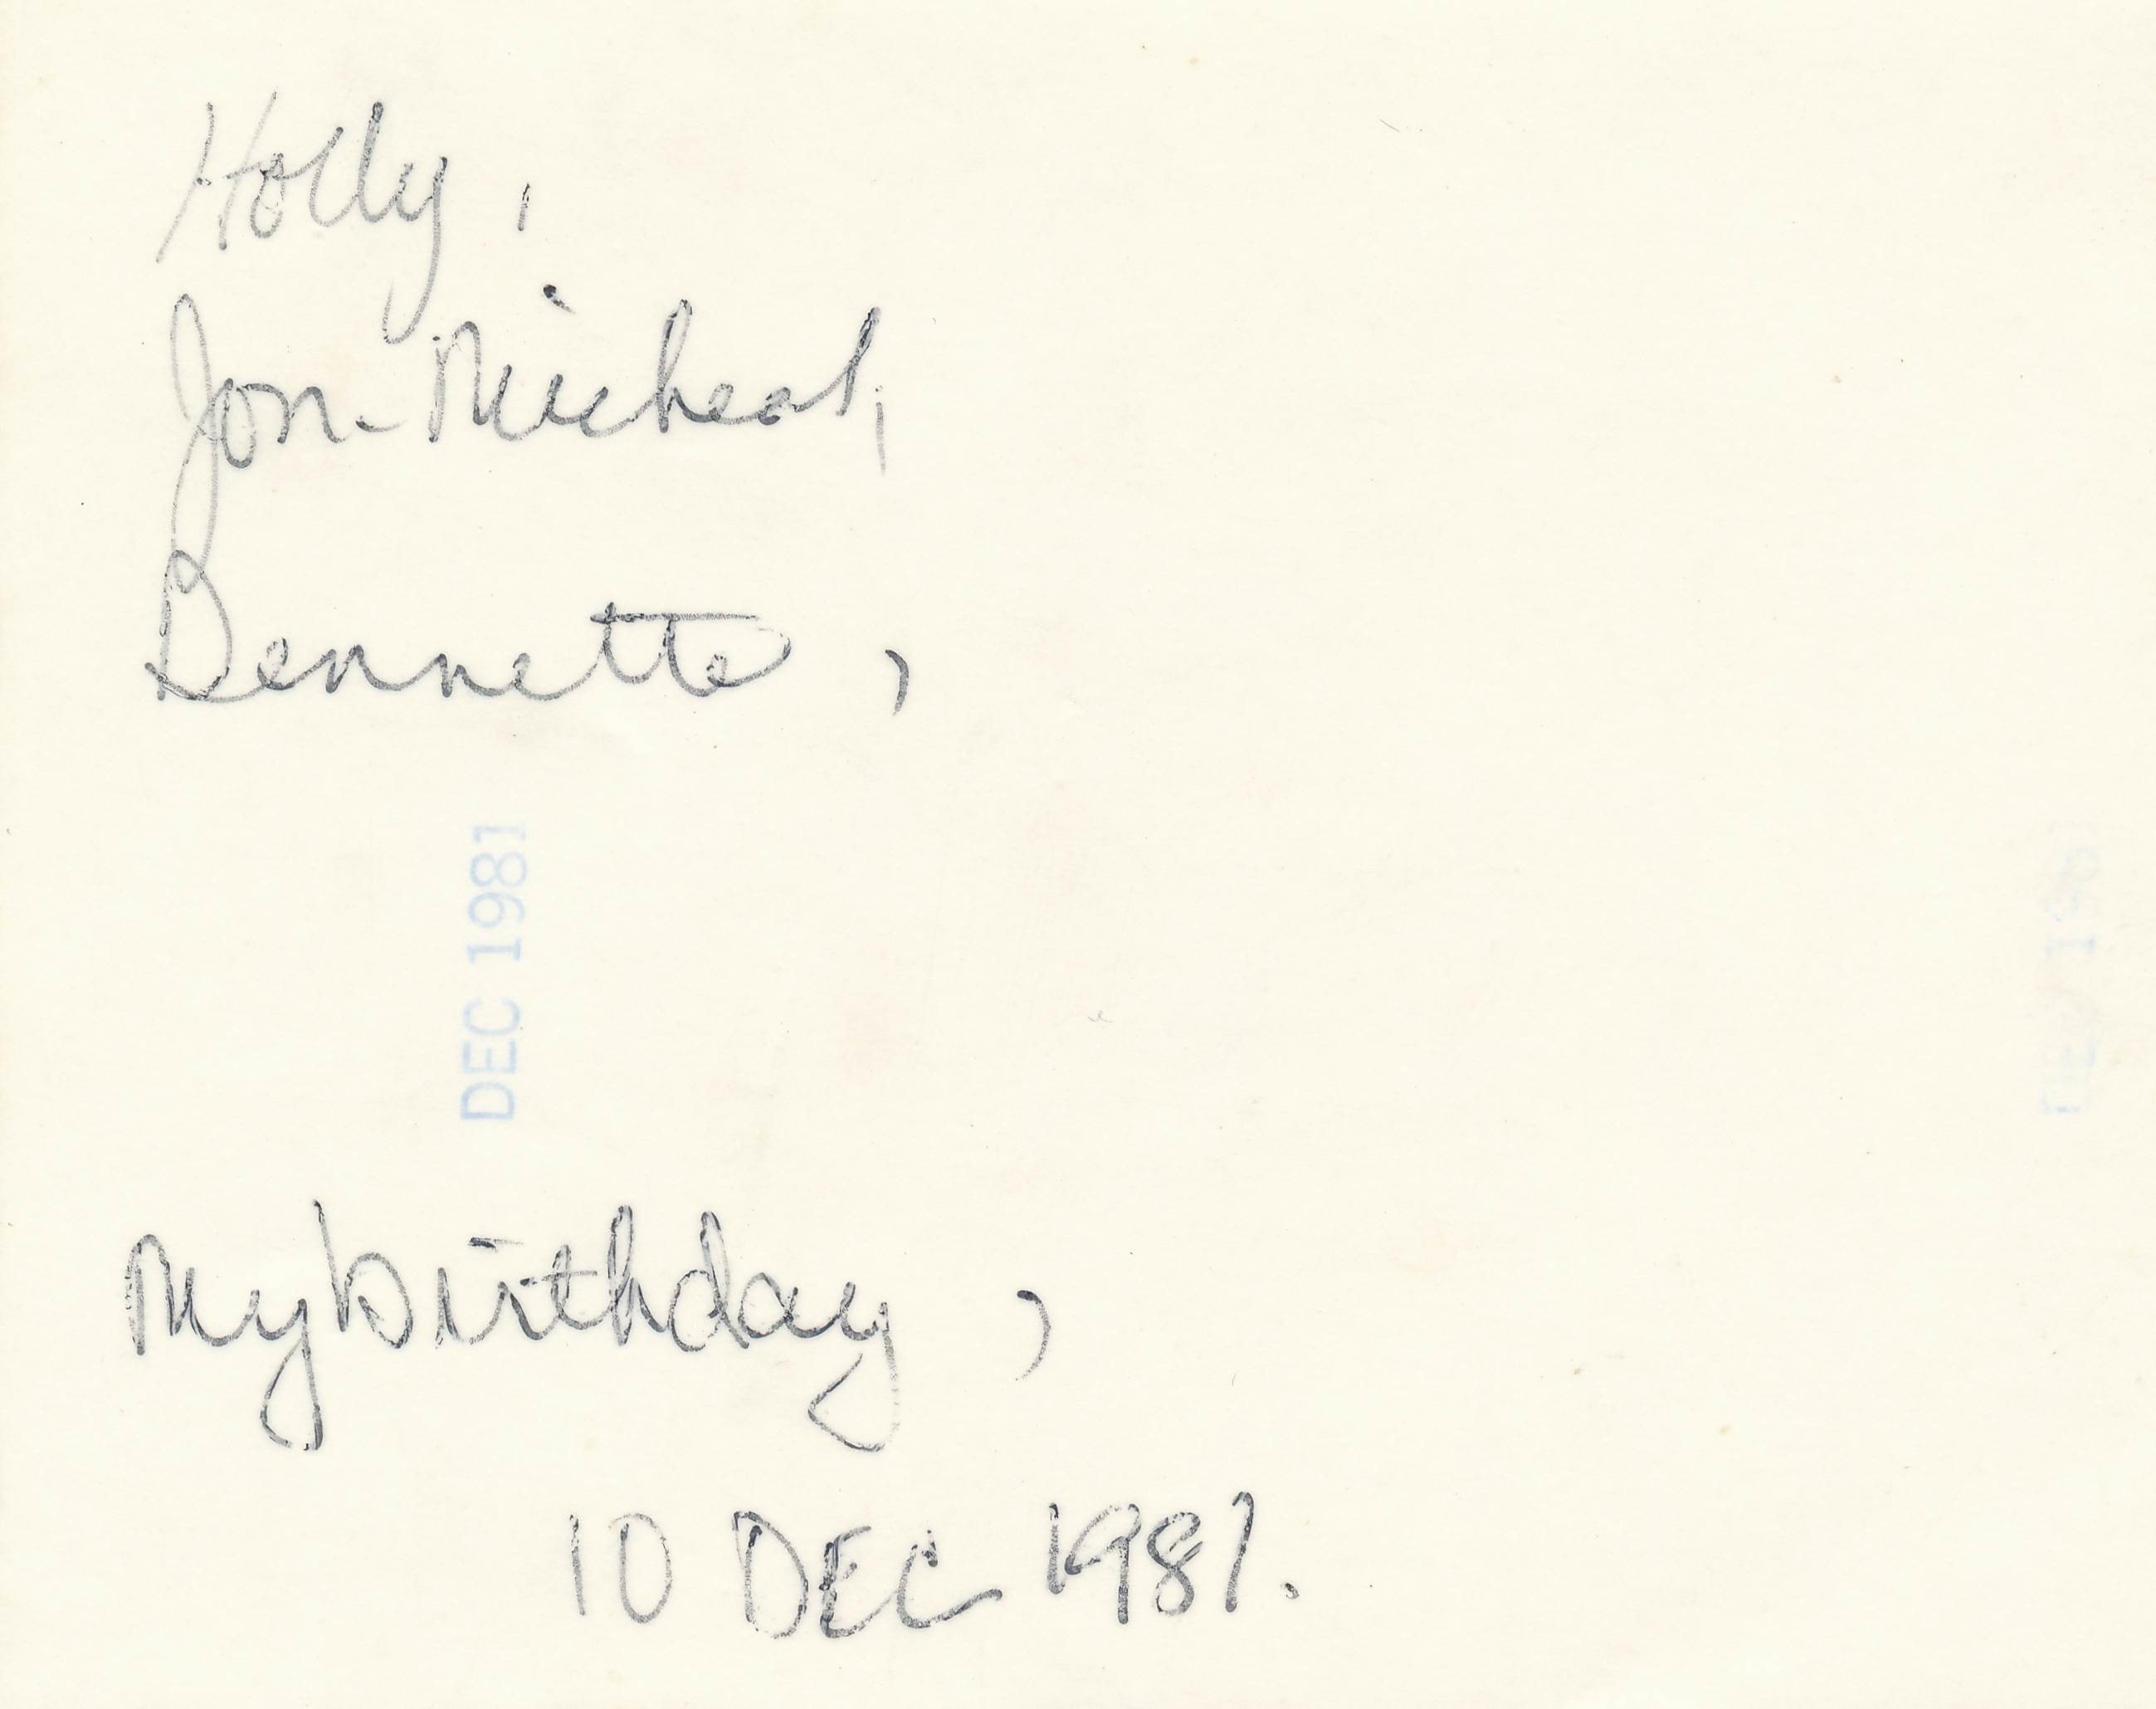 Holly,
Jon-Micheal,
Bennette,
DEC 1981
My birthday,
10 DEC 1981.